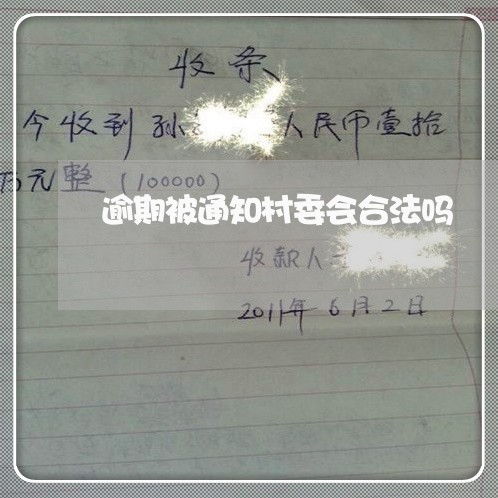 收条
今收到孙 人民币壹拾
万元整(100000)
逾期被通知村委会合法吗
收款人
2011年6月2日